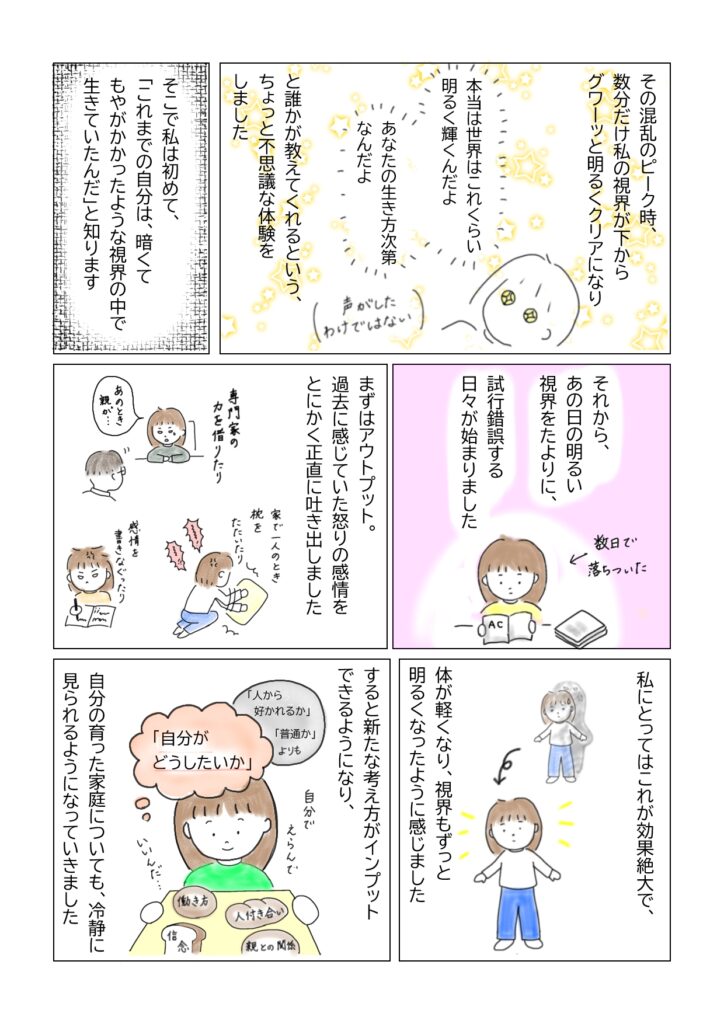 その混乱のピーク時、
数分だけ私の視界が下から
グワーッと明るくクリアになり
本当は世界はこれくらい
明るく輝くんだよ
あなたの生き方次第
なんだよ
と誰かが教えてくれるという、
ちょっと不思議な体験を
しました
声がした
わけではない
そこで私は初めて、
「これまでの自分は、暗くて
もやがかかったような視界の中で
生きていたんだ」と知ります
それから、
あの日の明るい
視界をたよりに、
試行錯誤する
日々が始まりました
数日で
落ちついた
AC
まずはアウトプット。
過去に感じていた怒りの感情を
とにかく正直に吐き出しました
専門家の
力を借りたり
あのとき
親が…
家で一人のとき
枕を
たたいたり
感情を
書きなぐったり
私にとってはこれが効果絶大で、
体が軽くなり、視界もずっと
明るくなったように感じました
すると新たな考え方がインプット
できるようになり、
「人から
好かれるか」
「普通か」
よりも
「自分が
どうしたいか」
自分で
えらんで
いいんだ…
働き方
人付き合い
信念
親との関係
自分の育った家庭についても、冷静に
見られるようになっていきました